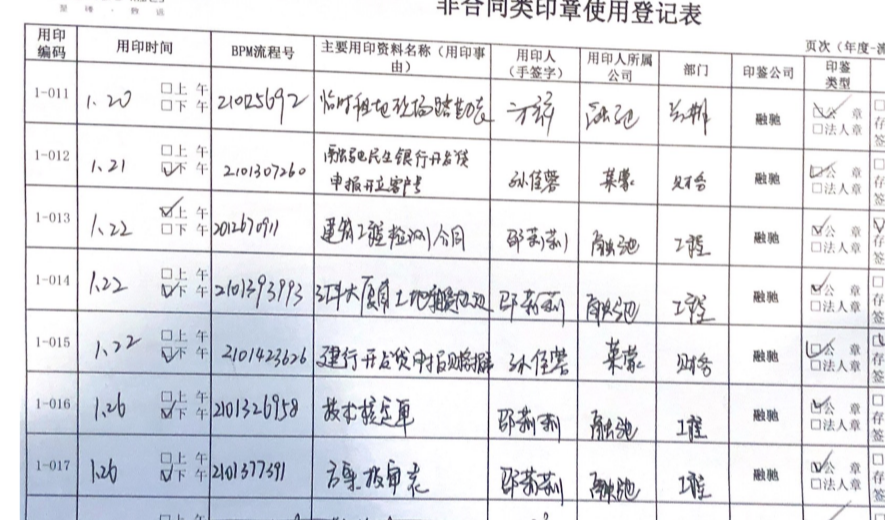 非合同类印章使用登记表
页次（年度-
用印编码 用印时间 BPM流程号 主要用印资料名称（用印事由） 用印人（手签字） 用印人所属公司 部门 印鉴公司 印鉴类型
1-011 1.20 □上午 □下午 2101256922 临时租地 融驰 公章 □法人章
1-012 1.21 □上午 ☑下午 2101307260 融驰民生银行开发贷申报开立客户号 孙佳蓉 莱蒙 财务 融驰 ☑公章 □法人章
1-013 1.22 ☑上午 □下午 2012670911 建筑工程检测合同 邵莉莉 融驰 工程 融驰 ☑公章 □法人章
1-014 1.22 □上午 ☑下午 2101393993 邵莉莉 融驰 工程 融驰 ☑公章 □法人章
1-015 1.22 □上午 ☑下午 2101423626 建行开发贷申报 孙佳蓉 莱蒙 财务 融驰 ☑公章 □法人章
1-016 1.26 □上午 ☑下午 2101326958 技术核定单 邵莉莉 融驰 工程 融驰 ☑公章 □法人章
1-017 1.26 □上午 ☑下午 2101377391 方案报审表 邵莉莉 融驰 工程 融驰 ☑公章 □法人章